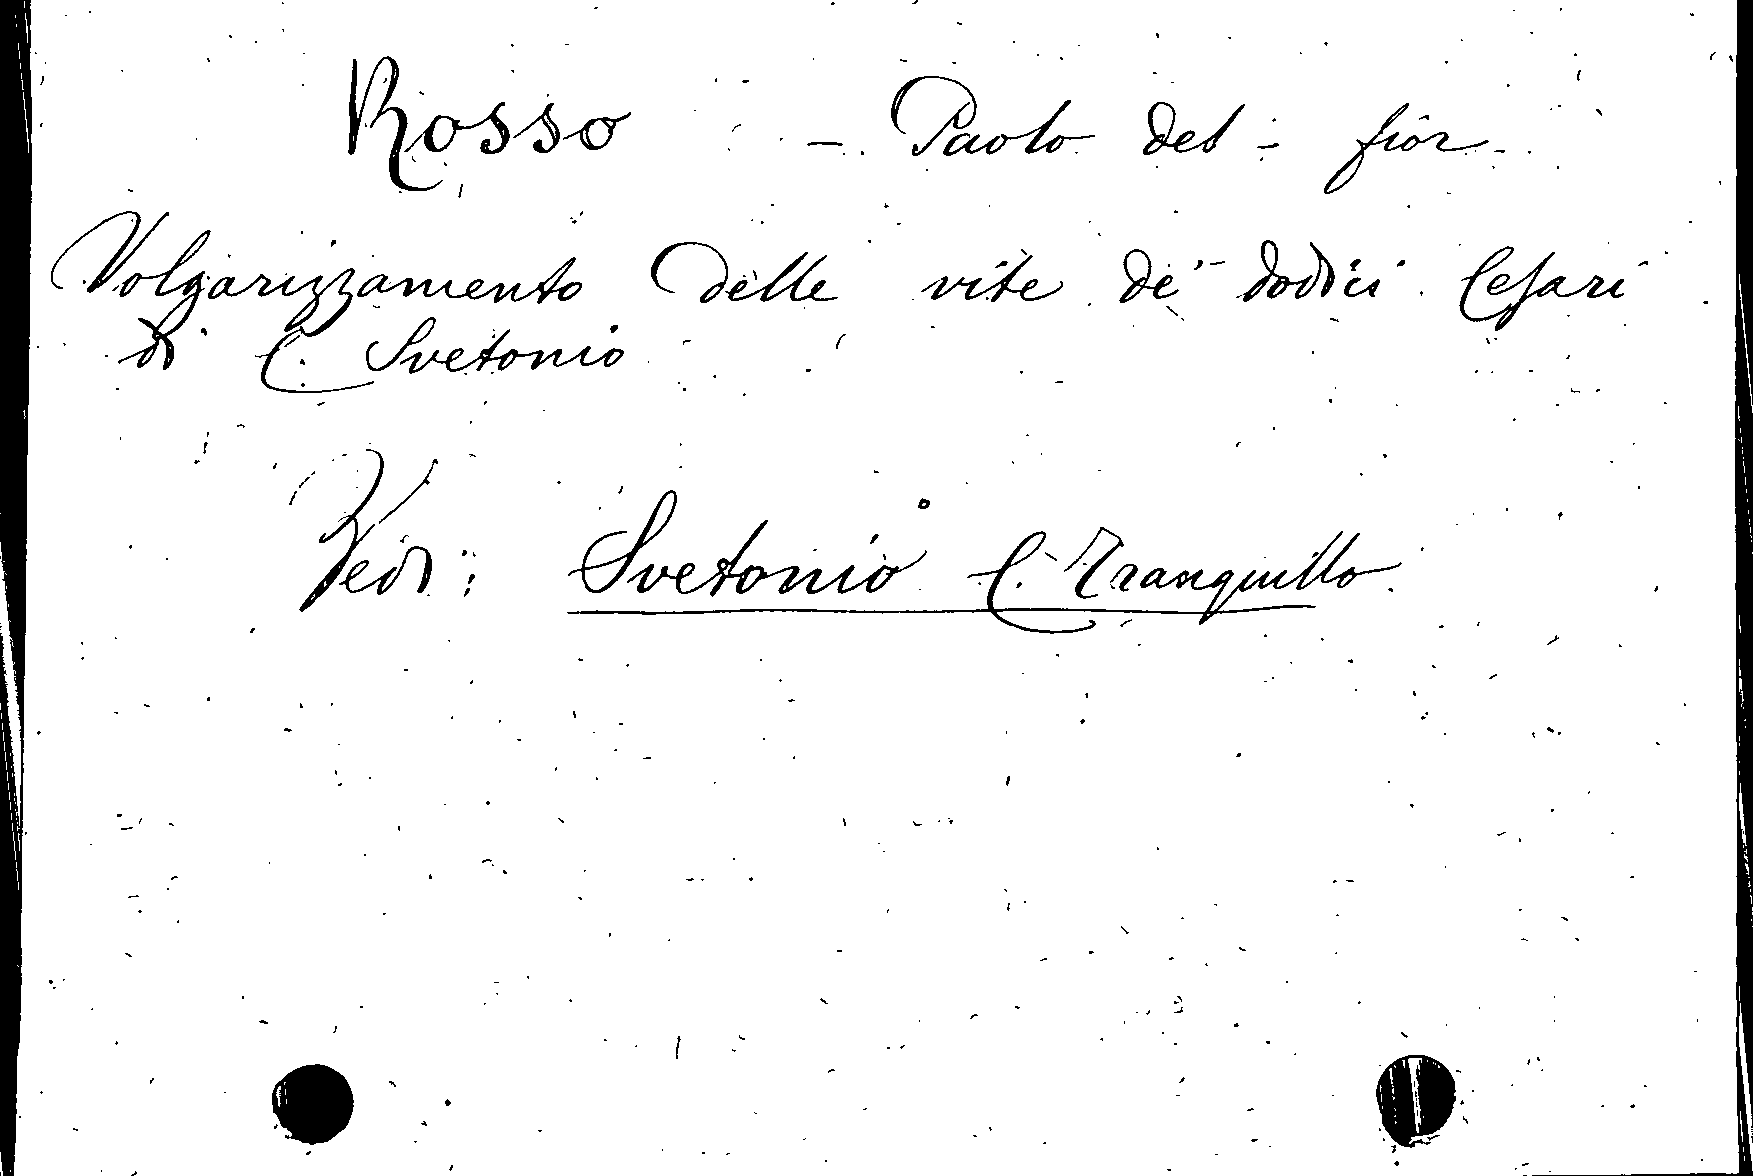 Rosso - Paolo del - fior -
Volgarizzamento delle vite de' dodici Cesari
di C. Svetonio
Vedi: Svetonio C. Tranquillo.